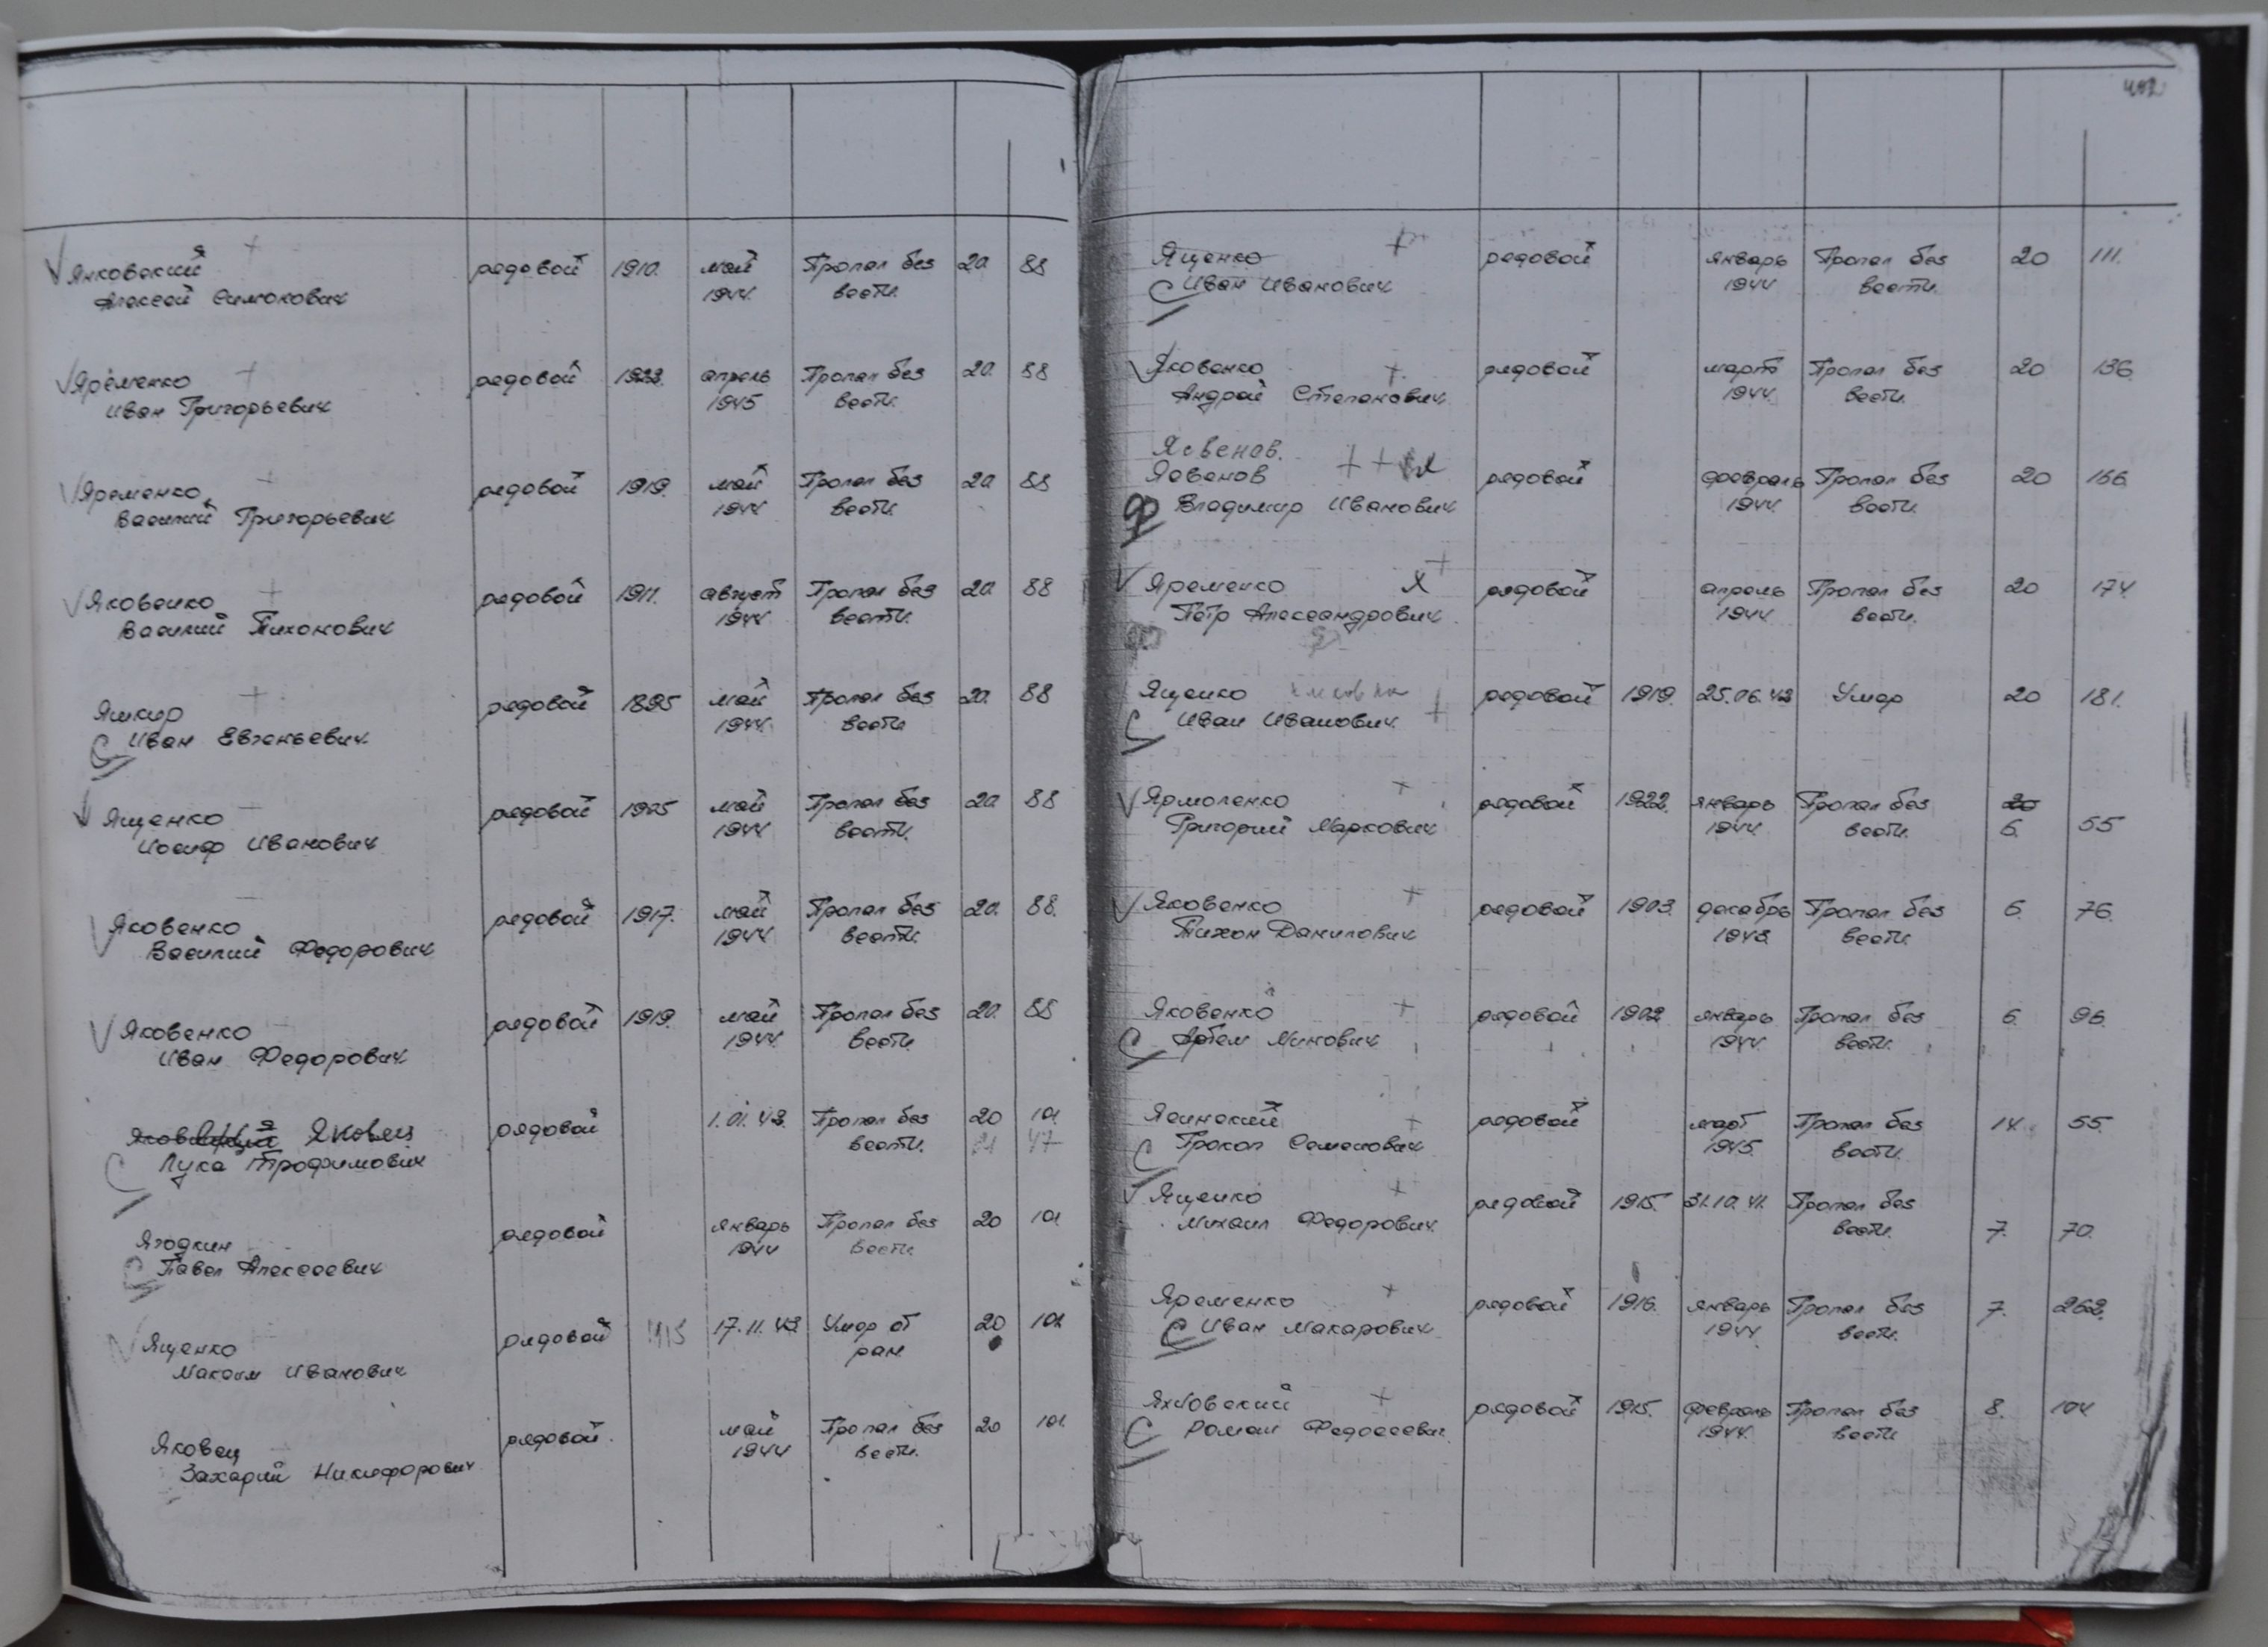 Янковский рядовой 1910. май Пропал без 20 88
Алексей Симонович 1944. вести.
Яременко рядовой 1922. апрель Пропал без 20. 88
Иван Григорьевич 1945 вести.
Яременко рядовой 1919. май Пропал без 20 88
Василий Григорьевич 1944 вести.
Яковенко рядовой 1911. август Пропал без 20 88
Василий Тихонович 1944 вести.
Яшкир рядовой 1895 май Пропал без 20. 88
Иван Евгеньевич 1944. вести
Ященко рядовой май Пропал без 20 88
Иосиф Иванович 1944 вести.
Яковенко рядовой 1917. май Пропал без 20. 88.
Василий Федорович 1944 вести.
Яковенко рядовой 1919. май Пропал без 20. 88
Иван Федорович 1944. вести
Яковец рядовой 1.01.43. Пропал без 20 101
Лука Трофимович вести. 47
Ягодкин рядовой январь Пропал без 20 101
Павел Алексеевич 1944 вести
Ященко рядовой 1915 17.11.43 Умер от 20 101
Максим Иванович ран
Яковец рядовой. май Пропал без 20 101
Захарий Никифорович 1944 вести.
Ященко рядовой январь Пропал без 20 111.
Иван Иванович 1944 вести.
Яковенко рядовой март Пропал без 20 136
Андрей Степанович 1944. вести.
Ясвенов.
Ясвенов рядовой февраль Пропал без 20 166
Владимир Иванович 1944. вести.
Яременко рядовой апрель Пропал без 20 174
Пётр Александрович 1944 вести.
Ященко рядовой 1919. 25.06.43 Умер 20 181.
Иван Иванович
Ярмоленко рядовой 1922. январь Пропал без 20
Григорий Маркович 1944 вести. 6. 55
Яковенко рядовой 1903. декабрь Пропал без 6. 76.
Тихон Данилович 1943. вести.
Яковенко рядовой 1902 январь Пропал без 6. 96.
Артем Минович 1944. вести.
Ясинский рядовой март Пропал без 14. 55.
Прокоп Семенович 1945. вести.
Ященко рядовой 1915. 31.10.41. Пропал без
Михаил Федорович вести. 7. 70.
Яременко рядовой 1916. январь Пропал без 7. 262.
Иван Макарович 1944 вести.
Яхновский рядовой 1915. февраль Пропал без 8. 104
Роман Федосеевич 1944. вести